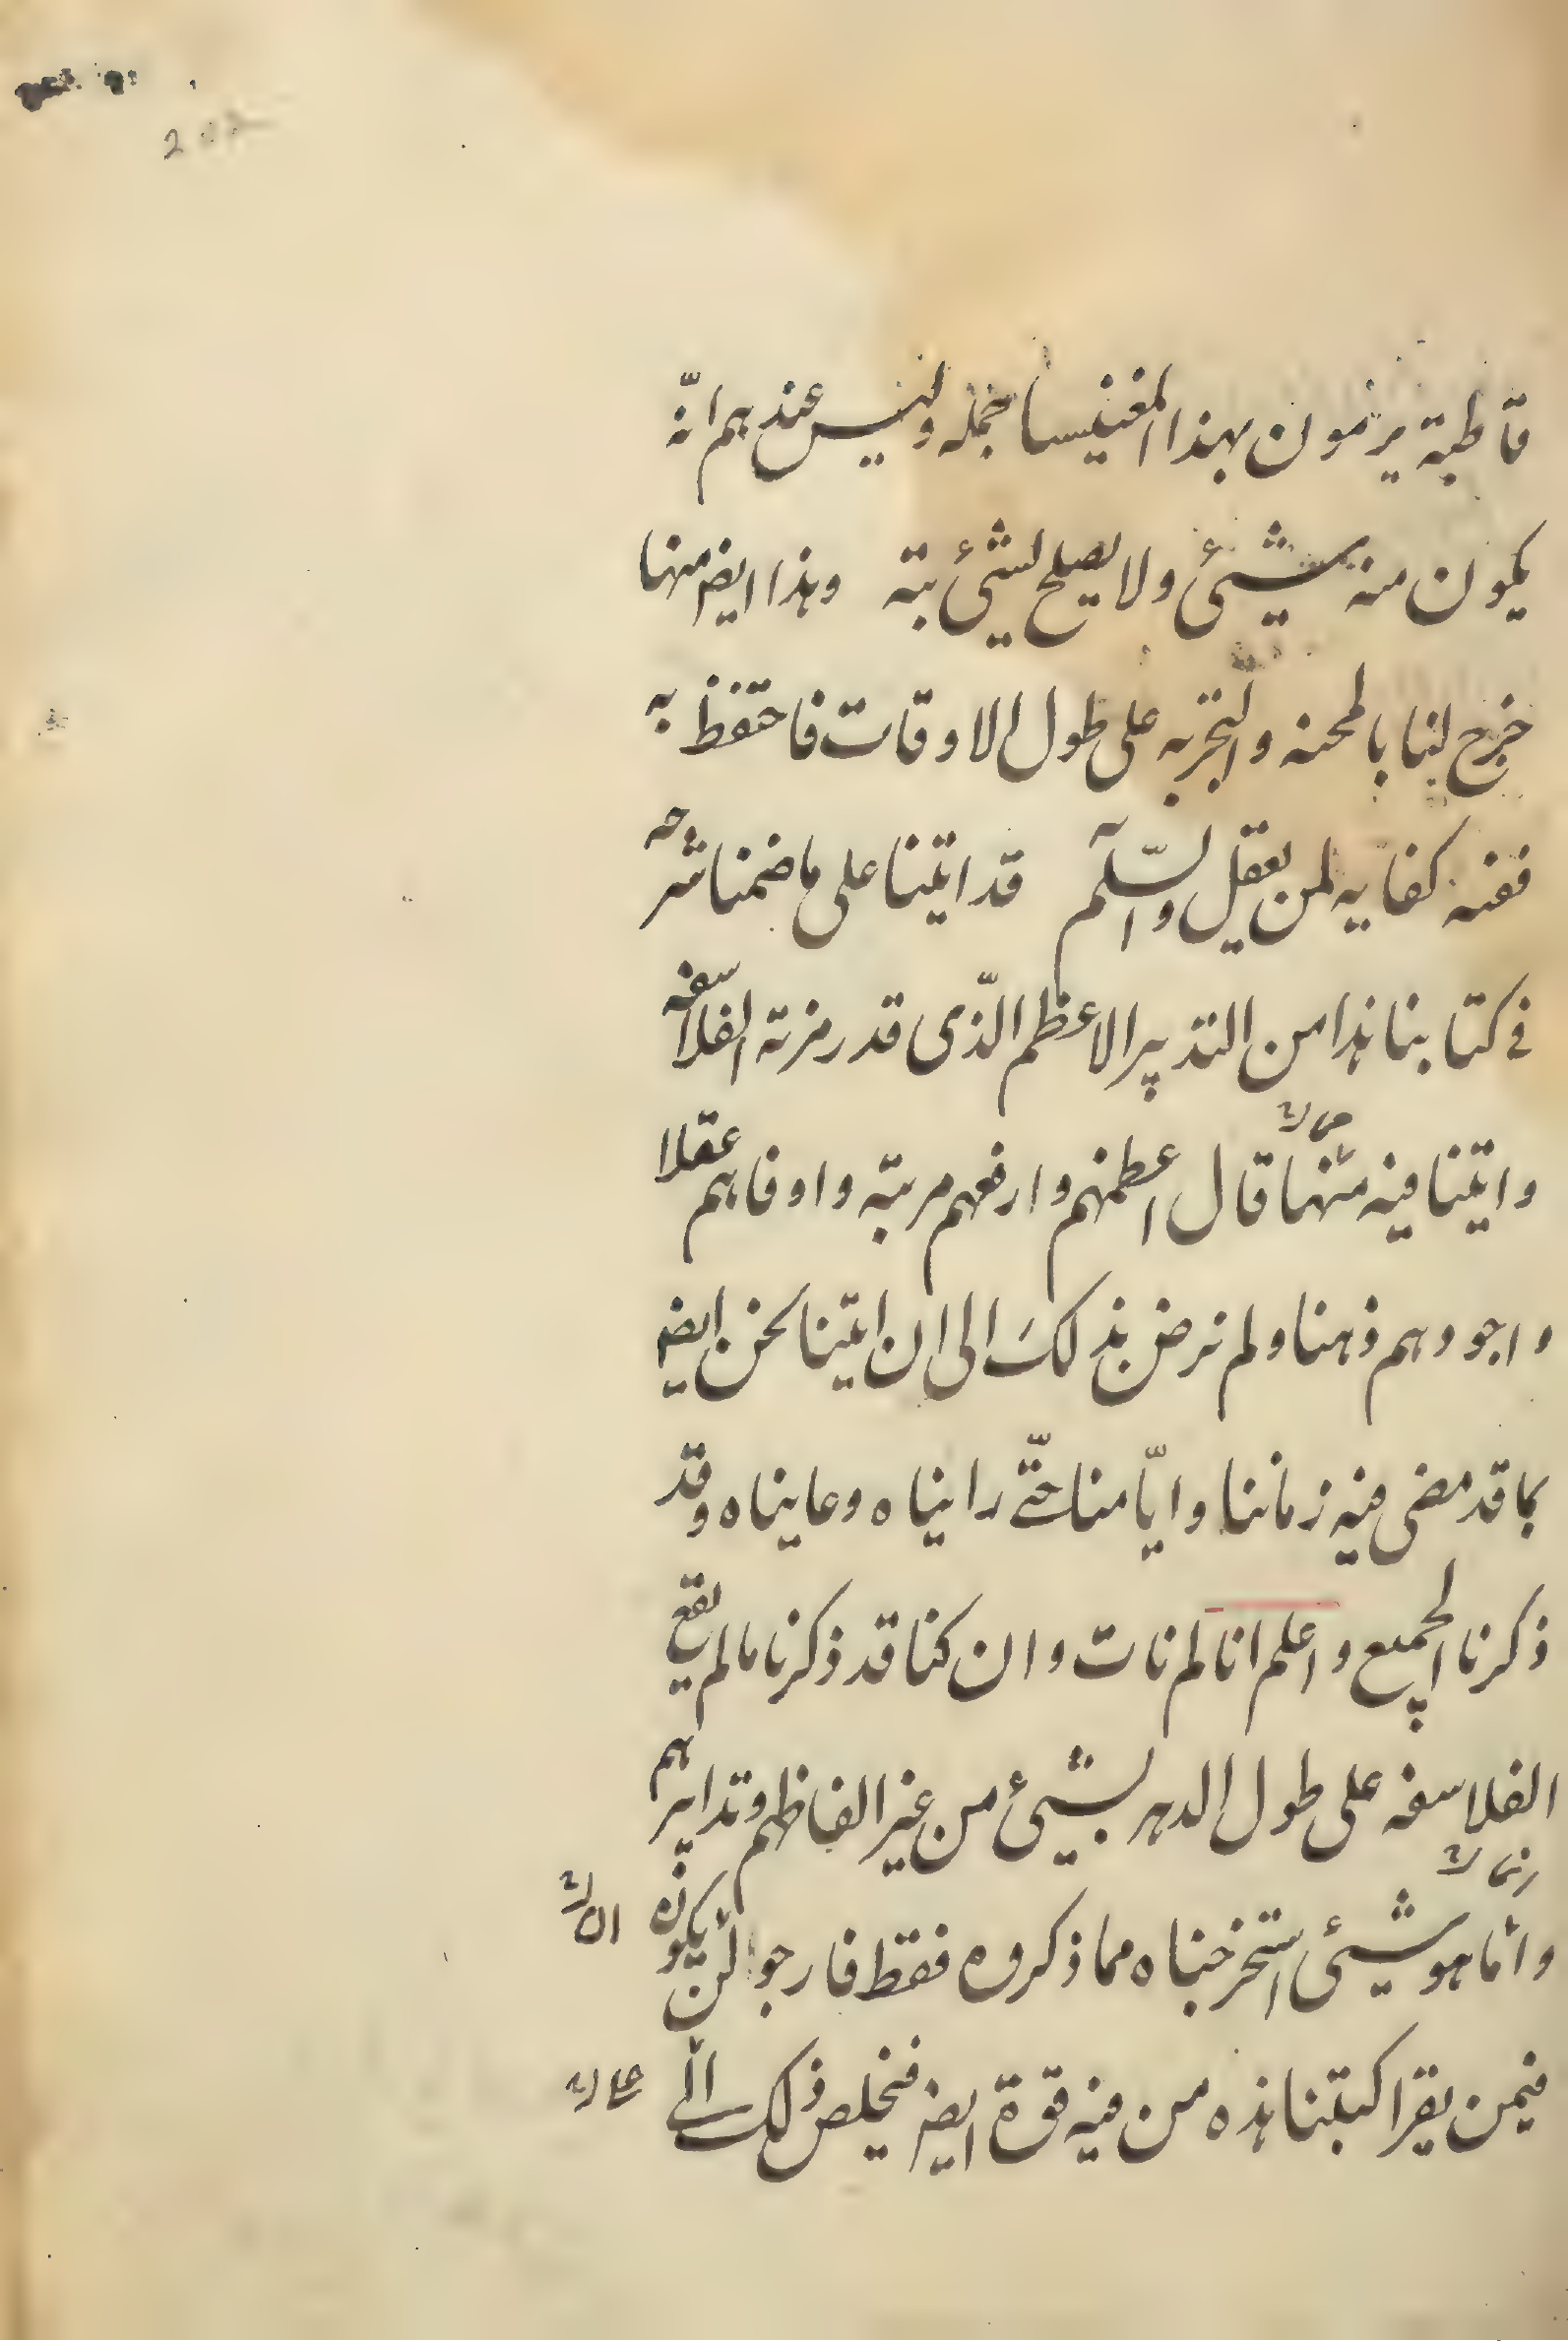 202
قاطبة يرمون بهذا المغنيسا جمله وليس عندهم انّه
يكون منه شيئ ولا يصلح لشيئ بته وهذا ايضر منها
خرج لنا بالمحنه والتجربه على طول الاوقات فاحتفظ به
ففيه كفايه لمن يعقل والسّلم قد اتينا على ما ضمنا شرحه
في كتابنا هذا من التدبير الاعظم الذّى قد رمزته الفلاسفه
واتينا فيه منها قال اعظمهم وارفعهم مرتبه واوفاهم عقلا
واجودهم ذهنا ولم نرض بذلك الى ان اتينا نحن ايضر
بما قد مضى فيه زماننا وايّامنا حتّى رايناه وعايناه وقد
ذكرنا الجميع واعلم انا لم نات وان كنا قد ذكرنا ما لم يقع
الفلاسفه على طول الدهر بشيئ من غير الفاظهم وتدابيرهم
وانما هو شيئ استخرجناه مما ذكروه فقط فارجو لن يكون
فيمن يقرا كتبنا هذه من فيه قوة ايضر فيخلص ذلك الى